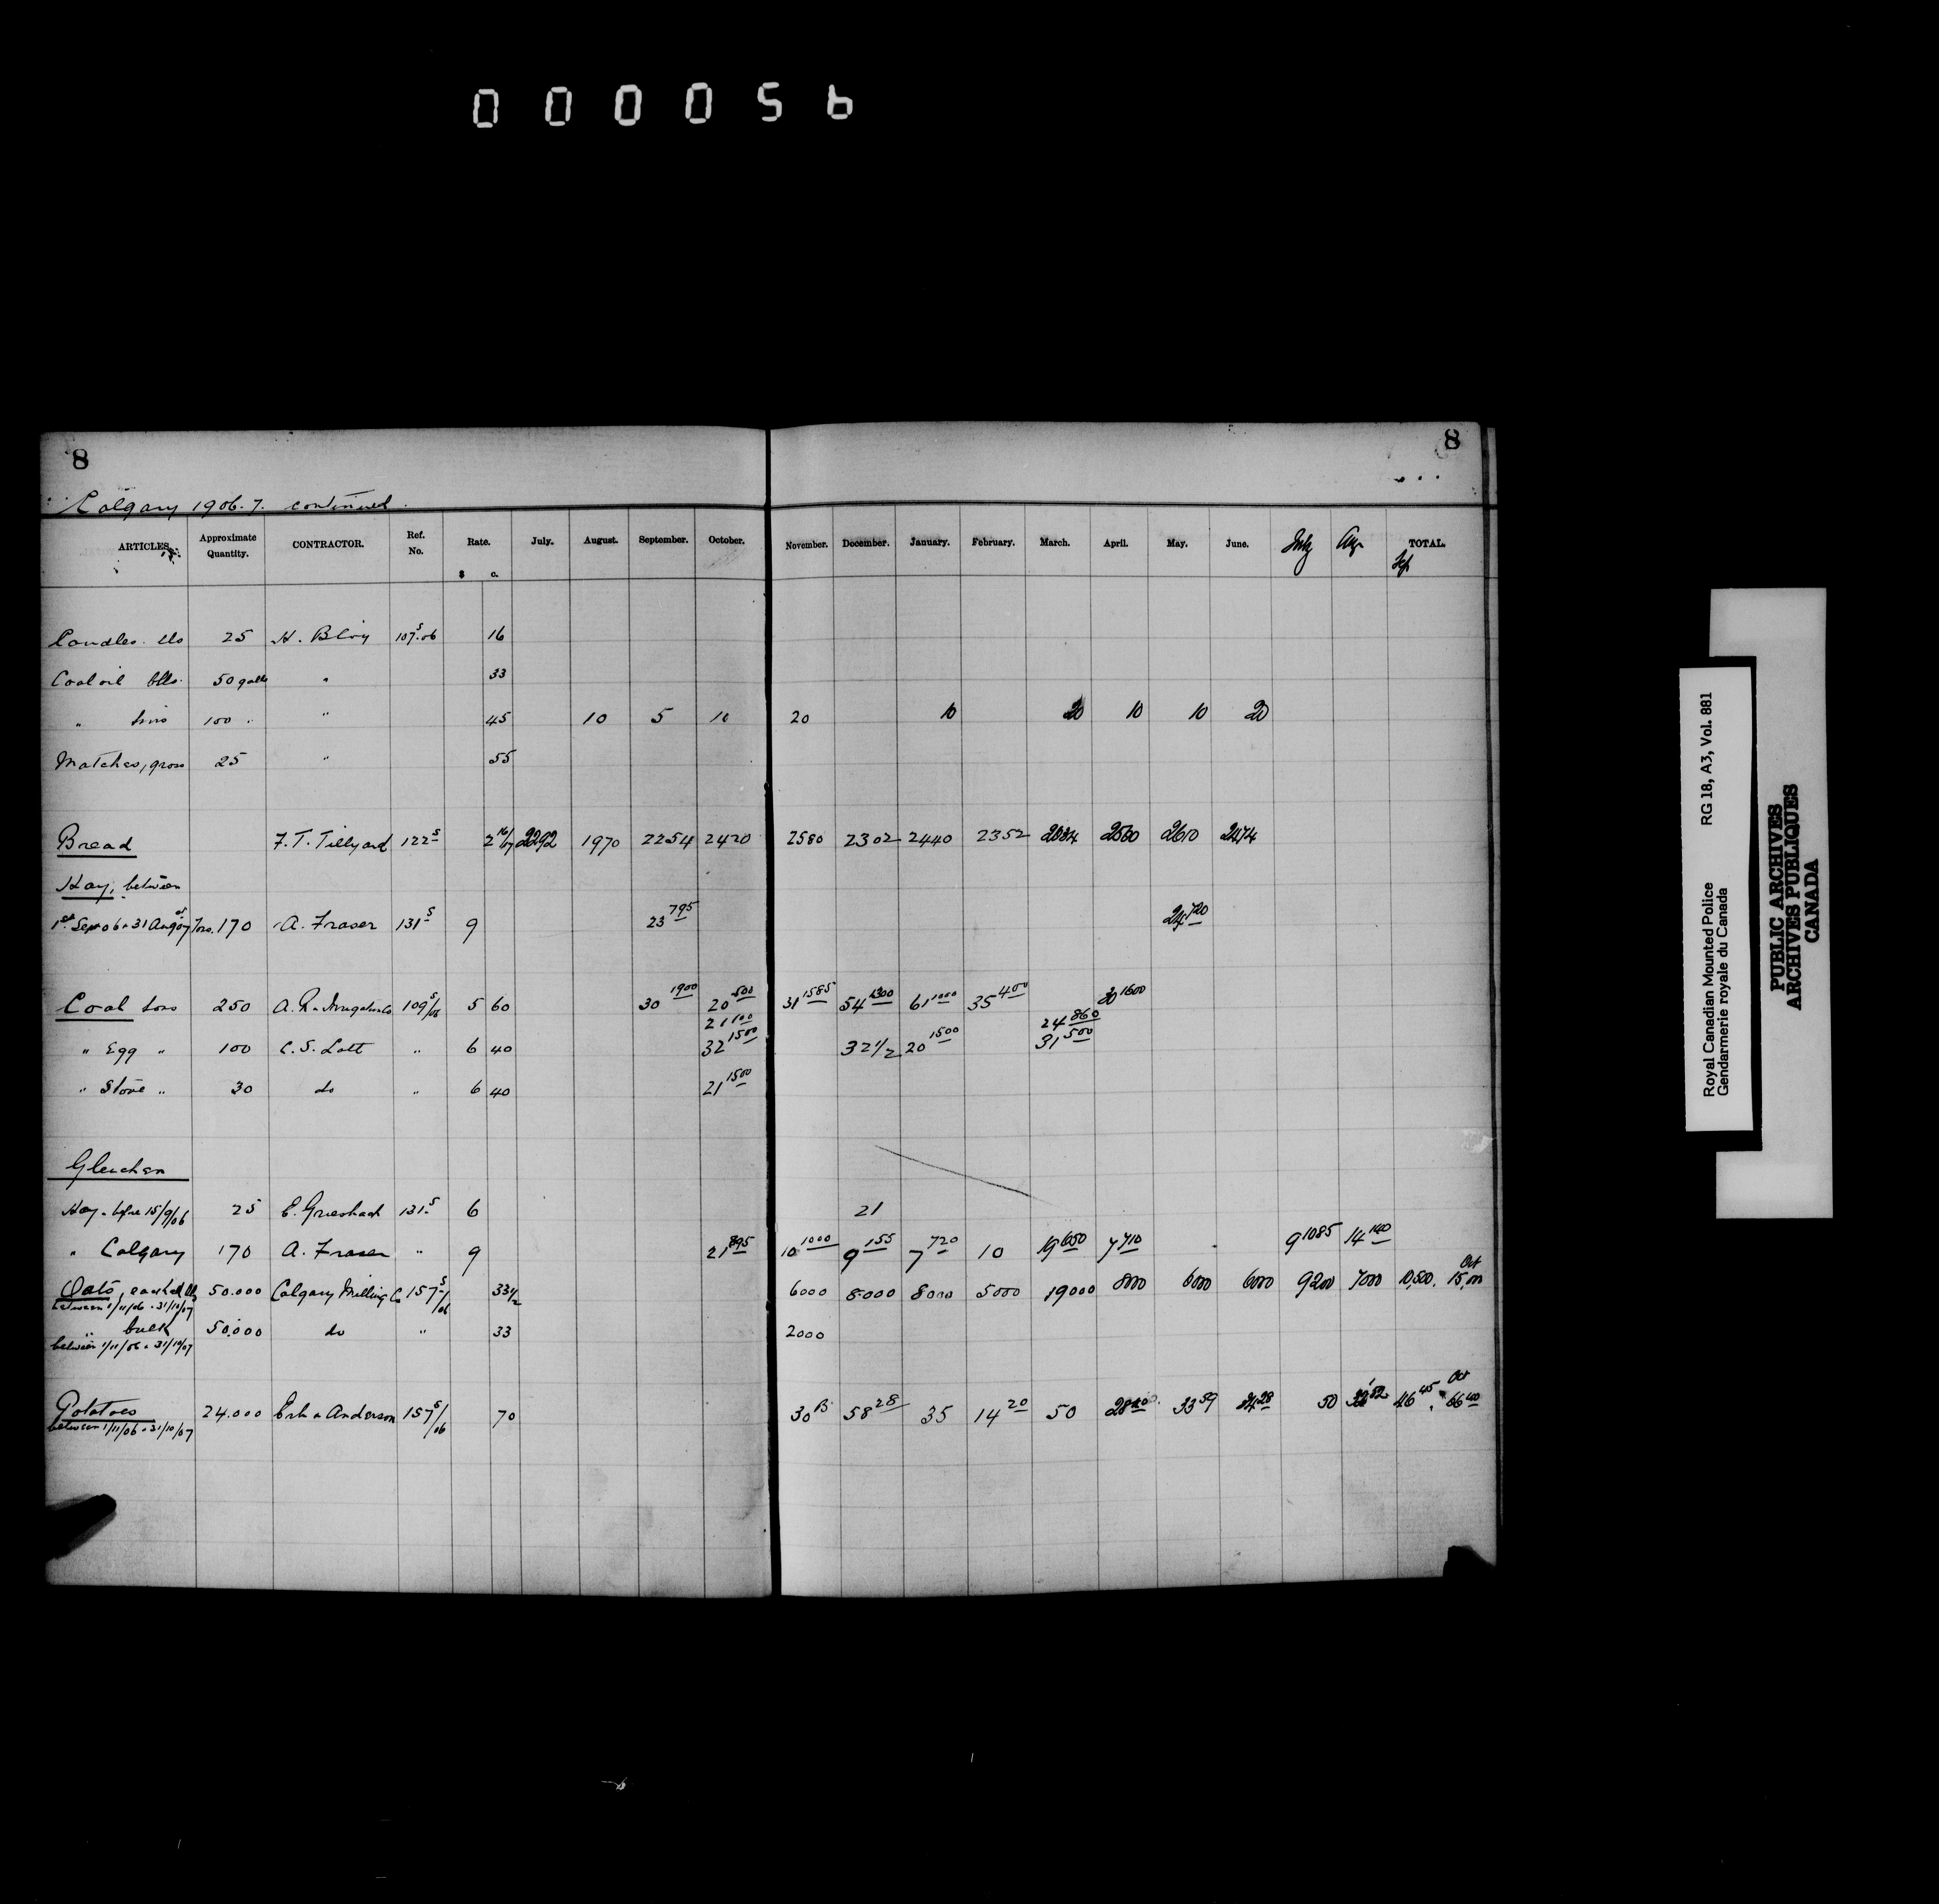 000056
8
8
Calgary 1906.7. continued.
ARTICLES. Approximate Quantity. CONTRACTOR. Ref. No. Rate. $ c. July. August. September. October. November. December. January. February. March. April. May. June. July Aug TOTAL. Sep
Candles lbs 25 H. 107 S 06 16
Coal oil bbls. 50 galls " 33
" tins 100 " " 45 10 5 10 20 10 20 10 10 20
Matches, gross 25 " 55
Bread F. T. Tillyard 122 S 2 16/17 2292 1970 2254 2420 2580 2302 2440 2352 2560 2610 2474
Hay, between
1st Sept 06 & 31 Aug 07 Tons. 170 A. Fraser 131 S 9 23 795 24 720
Coal tons 250 A. R. & 109 S/06 5 60 30 1900 20 500 31 1585 54 1300 61 1000 35 400 30 1600
21 100 24 860
" Egg " 100 C. S. Lott " 6 40 32 1500 32 1/2 20 1500 31 500
" Stove " 30 do " 6 40 21 1500
Gleichen
Hay. before 15/9/06 25 E. Griesbach 131 S 6 21
" Calgary 170 A. Fraser " 9 21 895 10 1000 9 155 7 720 10 19 650 7 710 9 1085 14 140
Oats, sacked, lbs 50.000 Calgary Milling Co 157 S/06 33 1/2 6000 8000 8000 5000 19000 8000 6000 6000 9200 7000 10,500. Oct 15,000
between 1/11/06 & 31/10/07
" bulk 50.000 do " 33 2000
between 1/11/06 & 31/10/07
Potatoes 24.000 & Anderson 157 S/06 70 30 B 58 28 35 14 20 50 33 59 24 28 50 46 45 Oct 66 40
between 1/11/06 & 31/10/07
Royal Canadian Mounted Police RG 18, A3, Vol. 881
Gendarmerie royale du Canada
PUBLIC ARCHIVES
ARCHIVES PUBLIQUES
CANADA